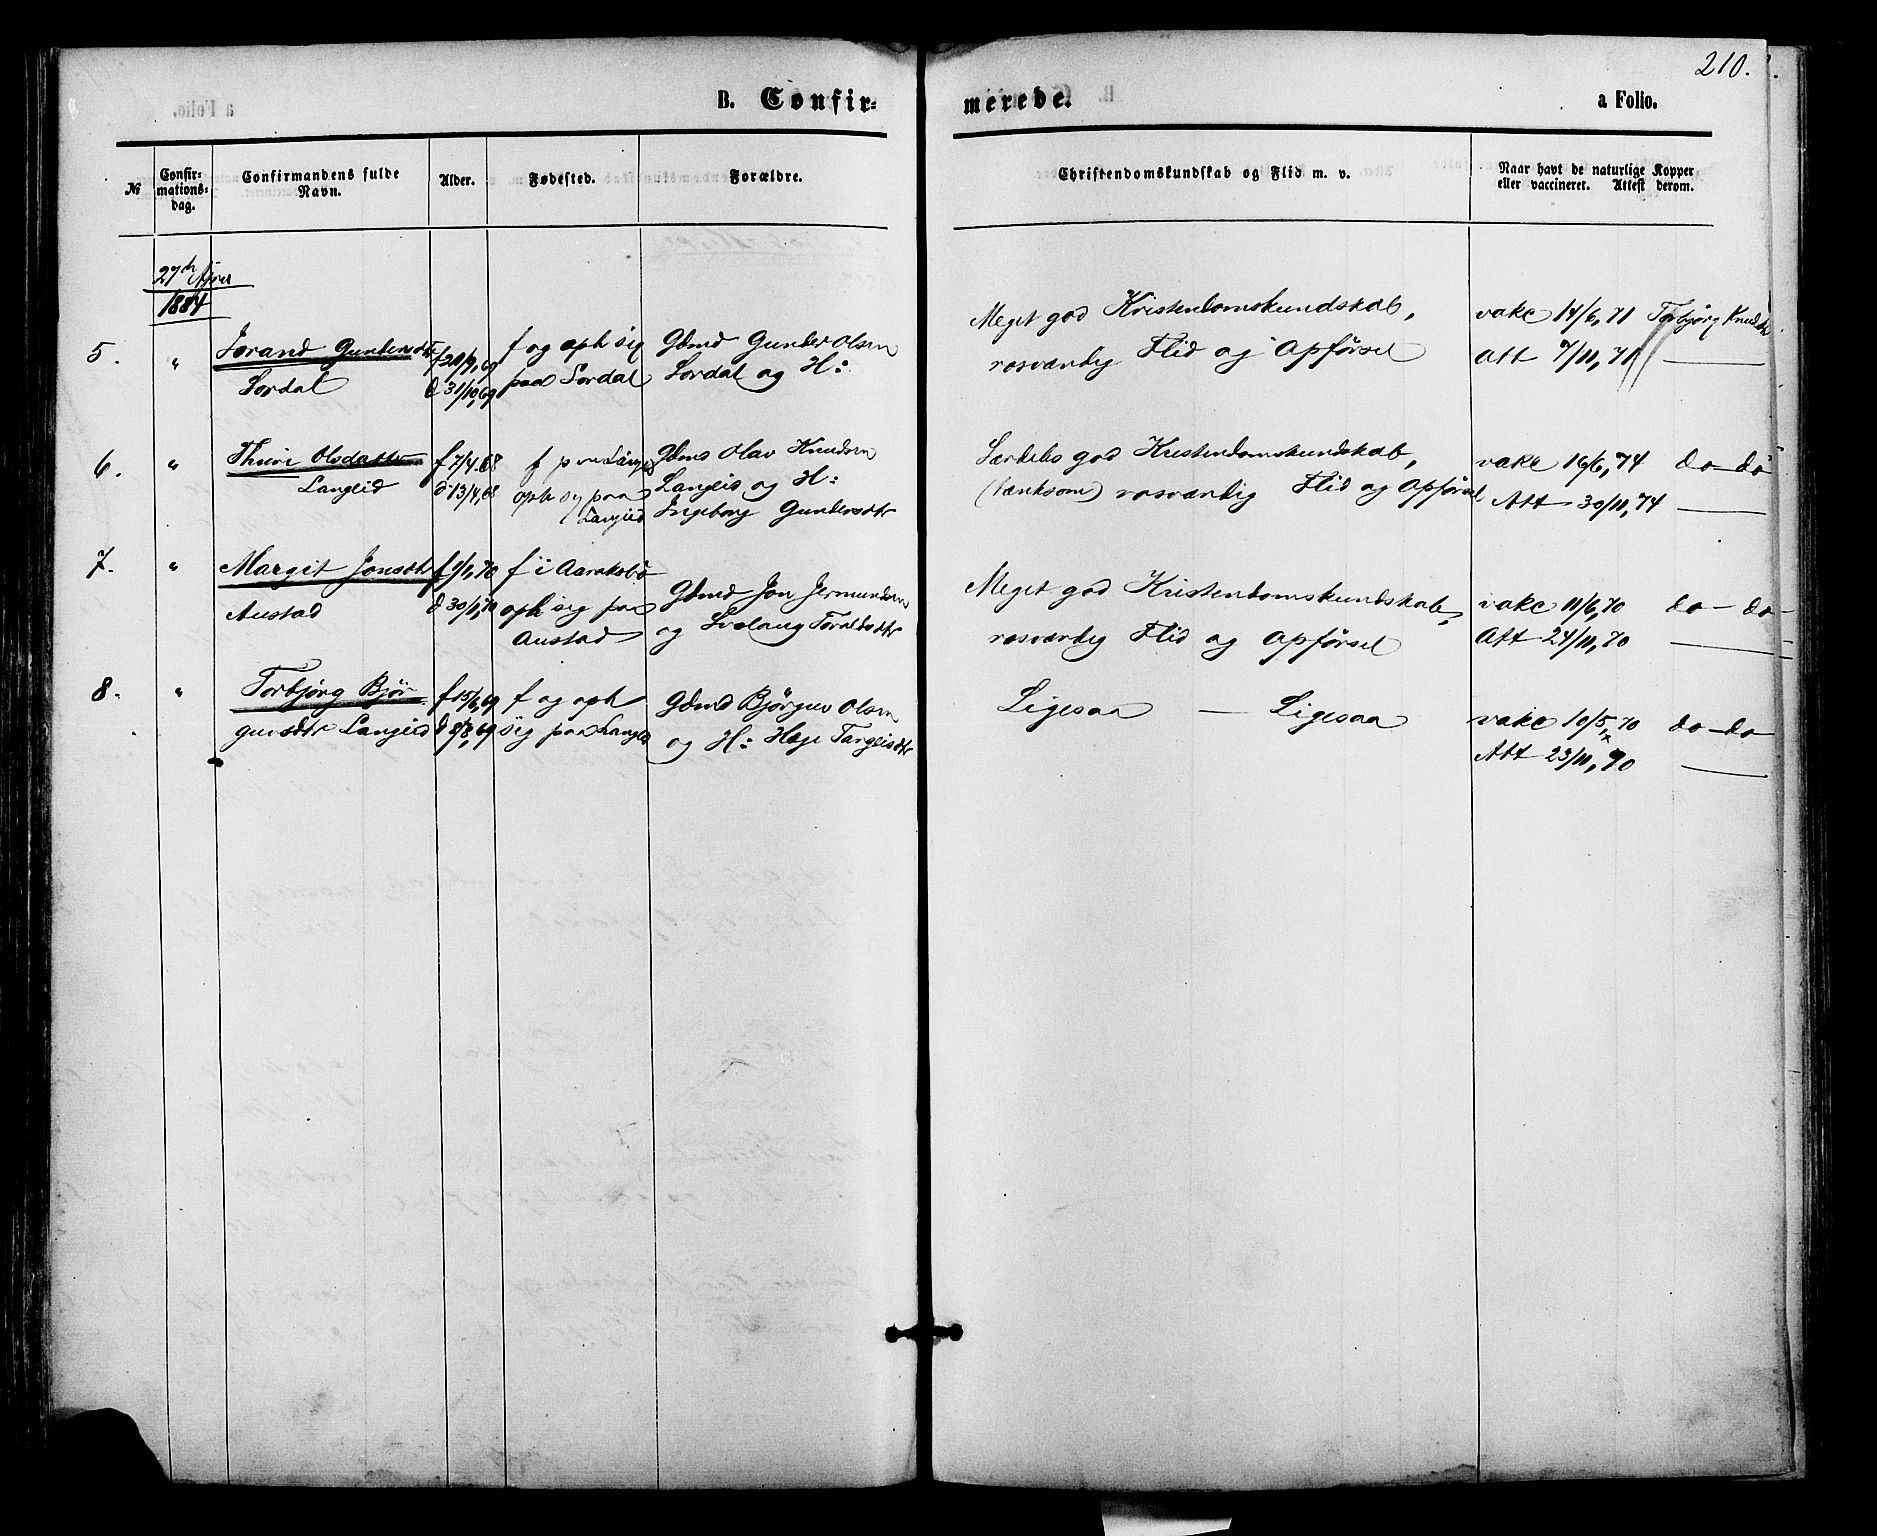 210.
B. Confir=
merede.
a Folio.
№
Confir=
mations=
dag.
Confirmandens fulde
Navn.
Alder.
Fødested.
Forældre.
Christendomskundskab og Flid m. v.
Naar havt de naturlige Kopper
eller vaccineret. Attest derom.
27th April
1884
5. " Jorand Gundersdtr
Lordal
f 20/9, 69
d 31/10, 69
f og oph sig
paa Lordal
Gbmd Gunder Olsen
Lordal og H:
Meget god Kristendomskundskab,
rosværdig Flid og Opførsel
vakc 14/6, 71 Torbjørg Knudsdtr
Att 7/11, 71 —
6. " Thuri Olsdatter
Langeid
f 7/4. 68
d 13/4, 68
f
oph sig paa
Langeid
Gbmd Olav Knudsen
Langeid og H:
Ingeborg Gundersdtr
Særdeles god Kristendomskundskab,
rosværdig Flid og Opførsel
vakc 16/6, 74 do – do
Att 30/11, 74 —
7. " Margit Jonsdtr
Austad
f 1/1, 70
d 30/1, 70
f i Aaraksbø
oph sig paa
Austad
Gbmd Jon Jermundsen
og Svalaug Toraldsdtr
Meget god Kristendomskundskab,
rosværdig Flid og Opførsel
vakc 11/6, 70 do – do –
Att 24/11, 70 —
8. " Torbjørg Bjør
gusdtr Langeid
f 15/6, 69
d 8/8, 69
f og oph
sig paa Langeid
Gbmd Bjørguv Olsen
og H: Hæge Targeisdtr
Ligesaa — Ligesaa
vakc 10/5, 70 do – do
Att 23/11, 70 —